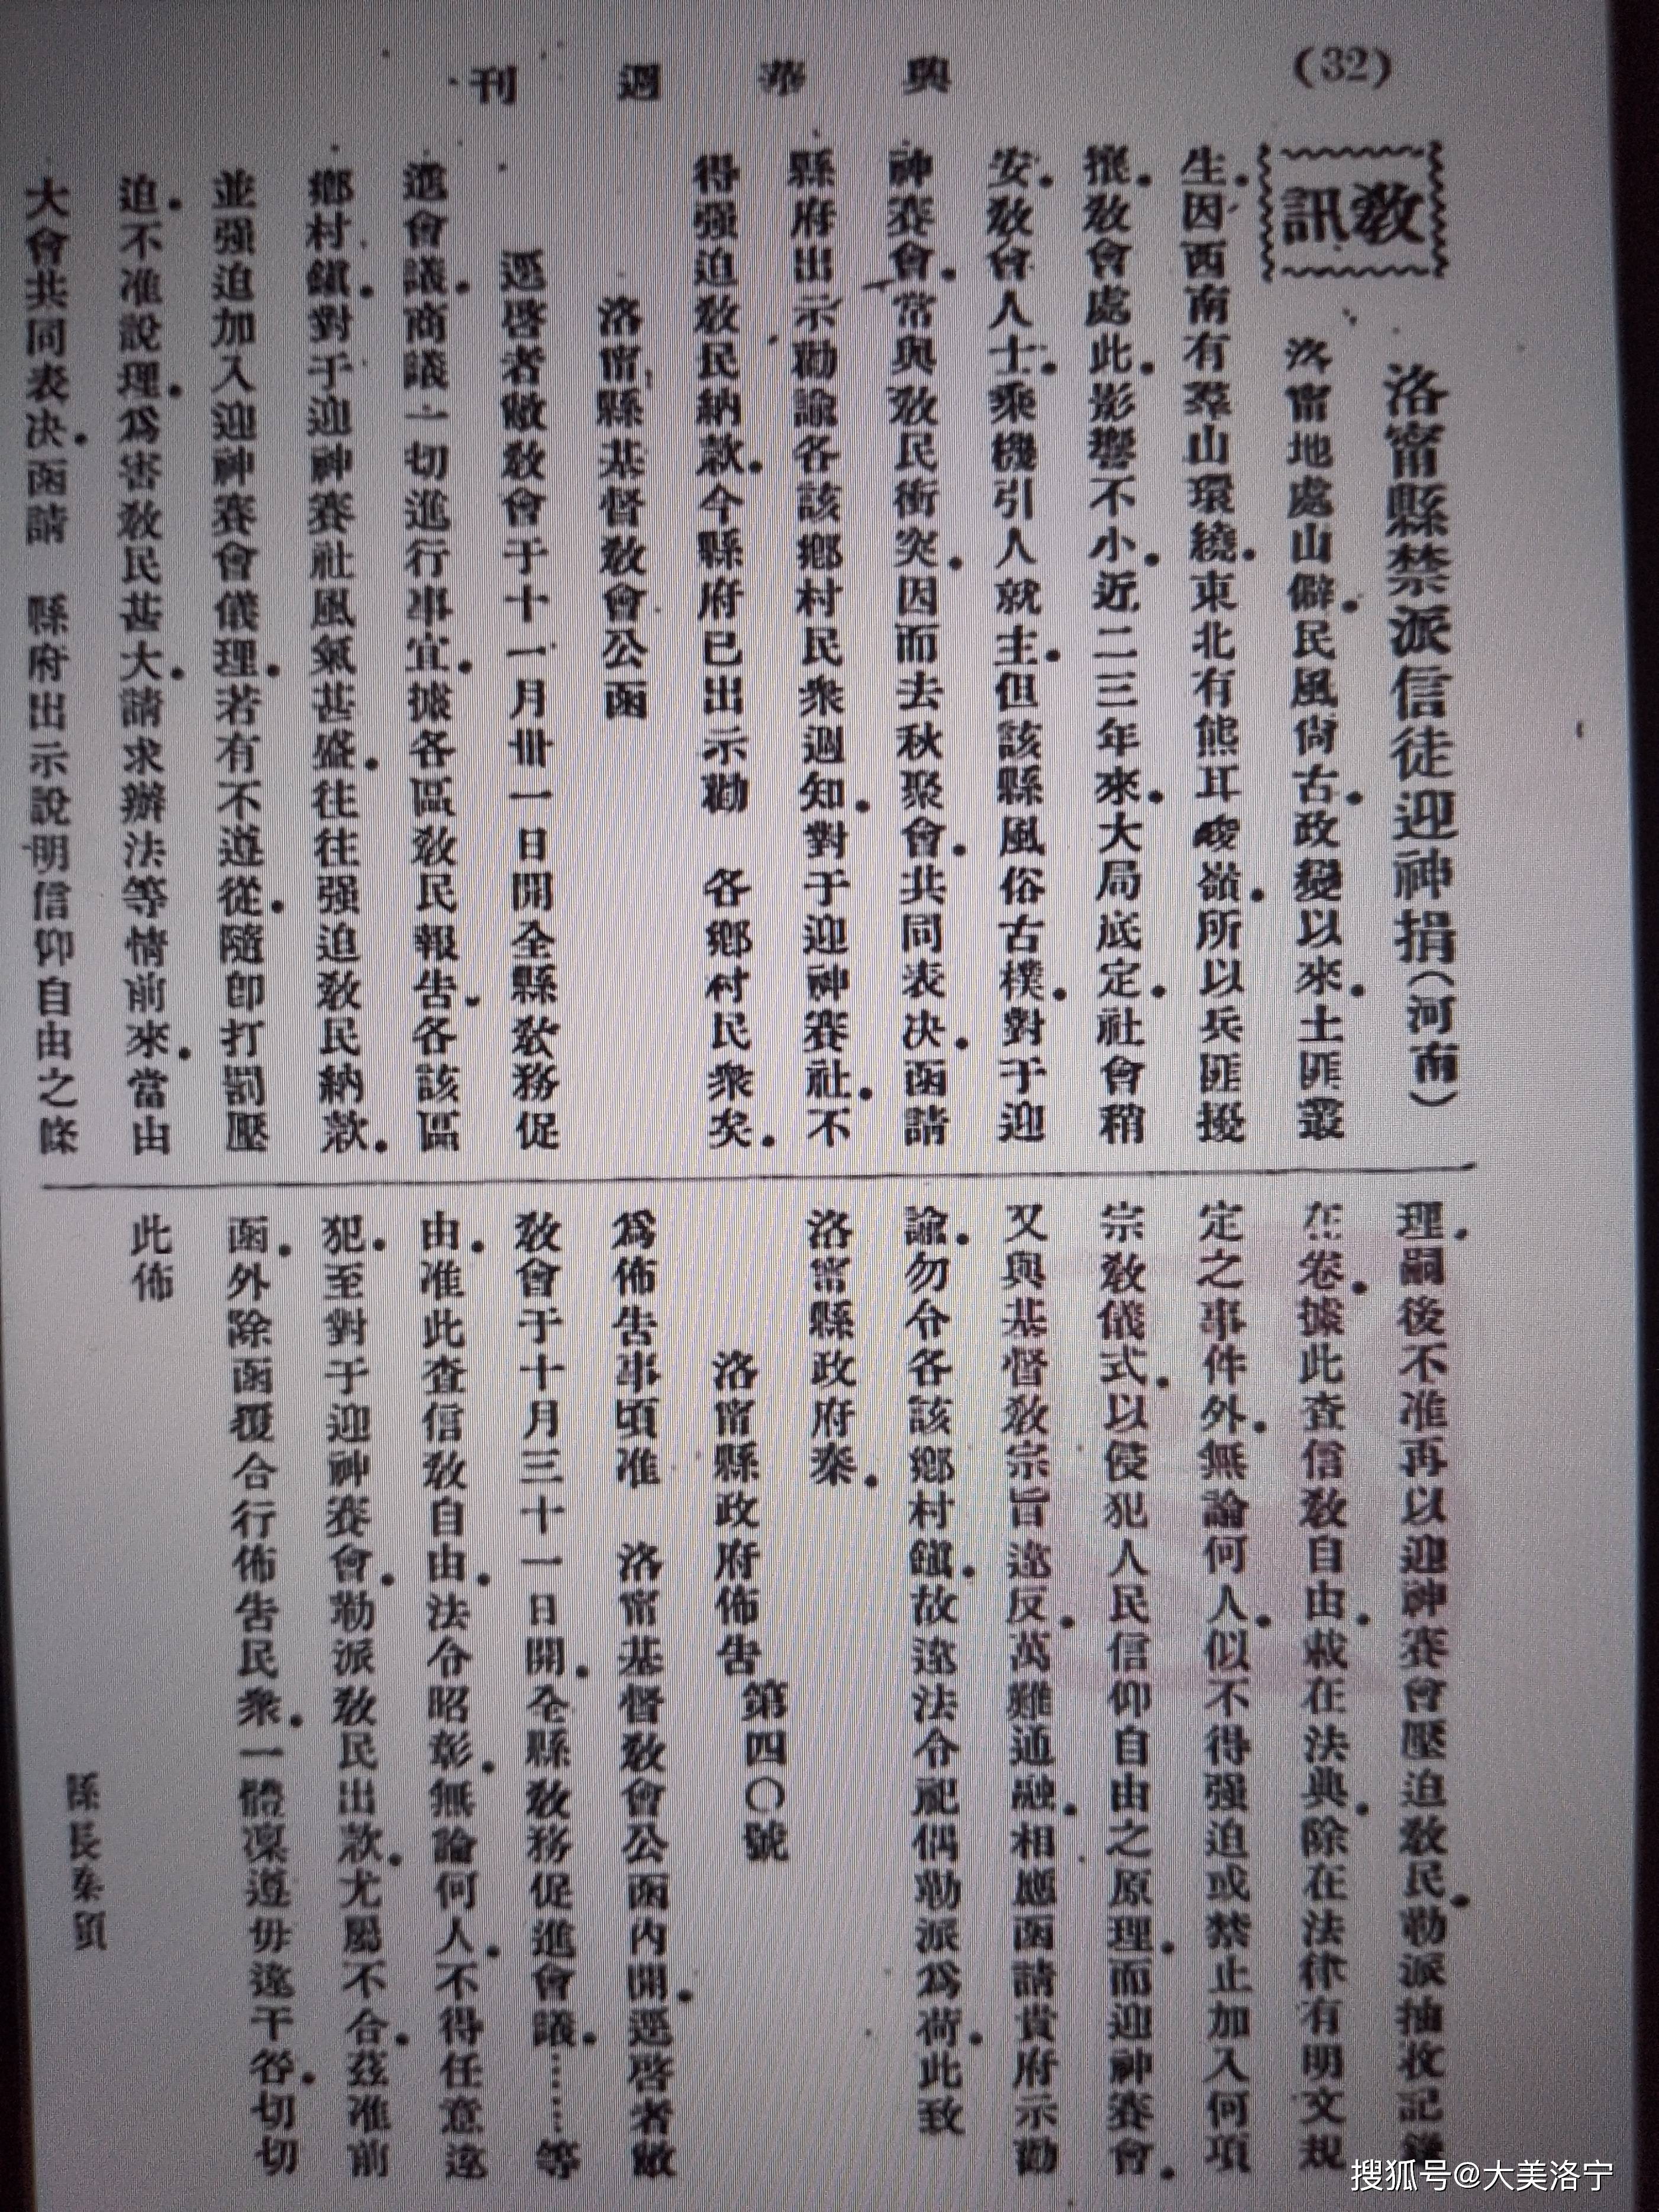 (32)
興華週刊
教訊
洛甯縣禁派信徒迎神捐(河南)
洛甯地處山僻．民風尙古．政變以來．土匪叢
生．因西南有羣山環繞．東北有熊耳崚嶺．所以兵匪擾
攘．敎會處此．影響不小．近二三年來．大局底定．社會稍
安．敎會人士．乘機引人就主．但該縣風俗古樸．對于迎
神賽會．常與敎民衝突．因而去秋聚會．共同表决．函請
縣府出示勸諭各該鄉村民衆週知．對于迎神賽社．不
得强迫敎民納款．今縣府已出示勸　各鄉村民衆矣．
洛甯縣基督敎會公函
逕啓者敝敎會于十一月卅一日開全縣敎務促
進會議．商議一切進行事宜．據各區敎民報告．各該區
鄉村鎭．對于迎神賽社風氣甚盛．往往强迫敎民納款．
並强迫加入迎神賽會儀理．若有不遵從．隨卽打罰壓
迫．不准說理．爲害敎民甚大．請求辦法等情前來．當由
大會共同表决．函請　縣府出示說明信仰自由之條
理．嗣後不准再以迎神賽會壓迫敎民．勒派抽收記錄
在卷．據此查信敎自由．載在法典．除在法律有明文規
定之事件外．無論何人．似不得强迫或禁止加入何項
宗敎儀式．以侵犯人民信仰自由之原理．而迎神賽會．
又與基督敎宗旨違反．萬難通融．相應函請貴府示勸
諭．勿令各該鄉村鎭．故違法令祀偶勒派爲荷．此致
洛甯縣政府秦．
洛甯縣政府佈告第四〇號
爲佈告事頃准　洛甯基督敎會公函內開．逕啓者敝
敎會于十月三十一日開．全縣敎務促進會議．……等
由．准此查信敎自由．法令昭彰．無論何人．不得任意違
犯．至對于迎神賽會．勒派敎民出款．尤屬不合．茲准前
函．外除函覆合行佈告民衆．一體凜遵毋違干咎．切切
此佈
縣長秦
搜狐号@大美洛宁